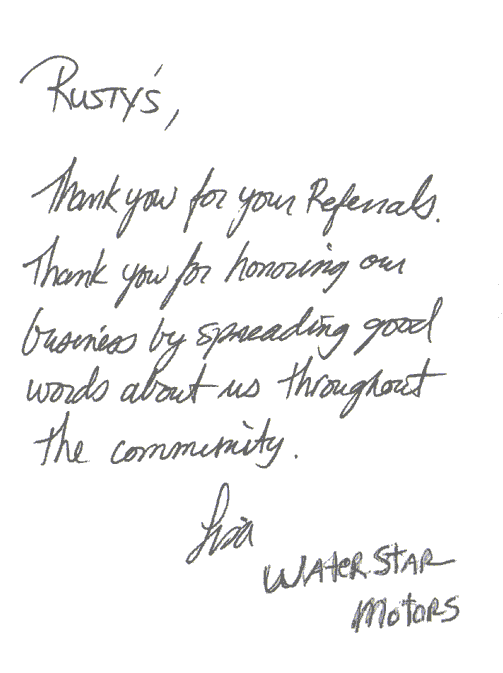 Rusty's,
Thank you for your Referrals.
Thank you for honoring our
business by spreading good
words about us throughout
the community.
Lisa
Water Star
Motors